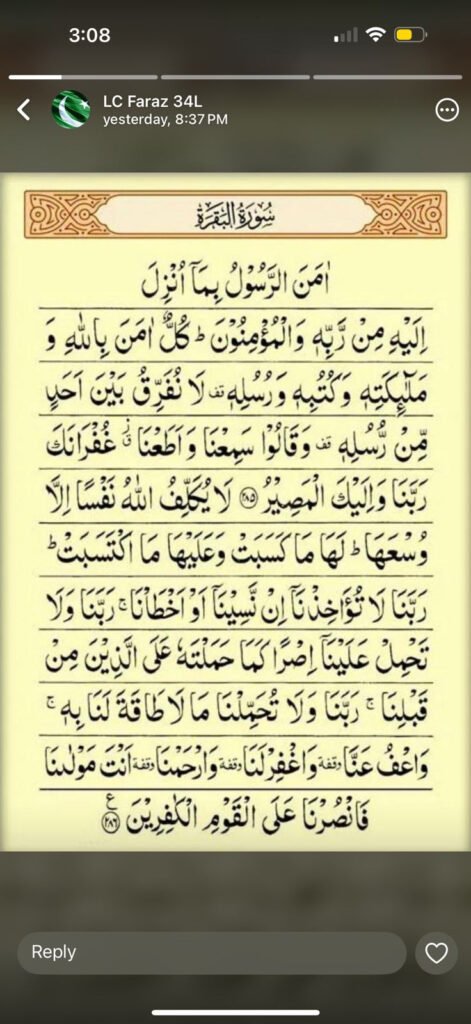 3:08
LC Faraz 34L
yesterday, 8:37 PM
سُوْرَةُ الْبَقَرَةِ
اٰمَنَ الرَّسُوْلُ بِمَآ اُنْزِلَ
اِلَيْهِ مِنْ رَّبِّهٖ وَالْمُؤْمِنُوْنَ ؕ كُلٌّ اٰمَنَ بِاللّٰهِ وَ
مَلٰٓئِكَتِهٖ وَكُتُبِهٖ وَرُسُلِهٖ قف لَا نُفَرِّقُ بَيْنَ اَحَدٍ
مِّنْ رُّسُلِهٖ قف وَقَالُوْا سَمِعْنَا وَاَطَعْنَا ق ز غُفْرَانَكَ
رَبَّنَا وَاِلَيْكَ الْمَصِيْرُ ﴿۲۸۵﴾ لَا يُكَلِّفُ اللّٰهُ نَفْسًا اِلَّا
وُسْعَهَا ؕ لَهَا مَا كَسَبَتْ وَعَلَيْهَا مَا اكْتَسَبَتْ ؕ
رَبَّنَا لَا تُؤَاخِذْنَآ اِنْ نَّسِيْنَآ اَوْ اَخْطَاْنَا ۚ رَبَّنَا وَلَا
تَحْمِلْ عَلَيْنَآ اِصْرًا كَمَا حَمَلْتَهٗ عَلَى الَّذِيْنَ مِنْ
قَبْلِنَا ۚ رَبَّنَا وَلَا تُحَمِّلْنَا مَا لَا طَاقَةَ لَنَا بِهٖ ۚ
وَاعْفُ عَنَّا وقفة وَاغْفِرْ لَنَا وقفة وَارْحَمْنَا وقفة اَنْتَ مَوْلٰىنَا
فَانْصُرْنَا عَلَى الْقَوْمِ الْكٰفِرِيْنَ ﴿۲۸۶﴾ ع
Reply